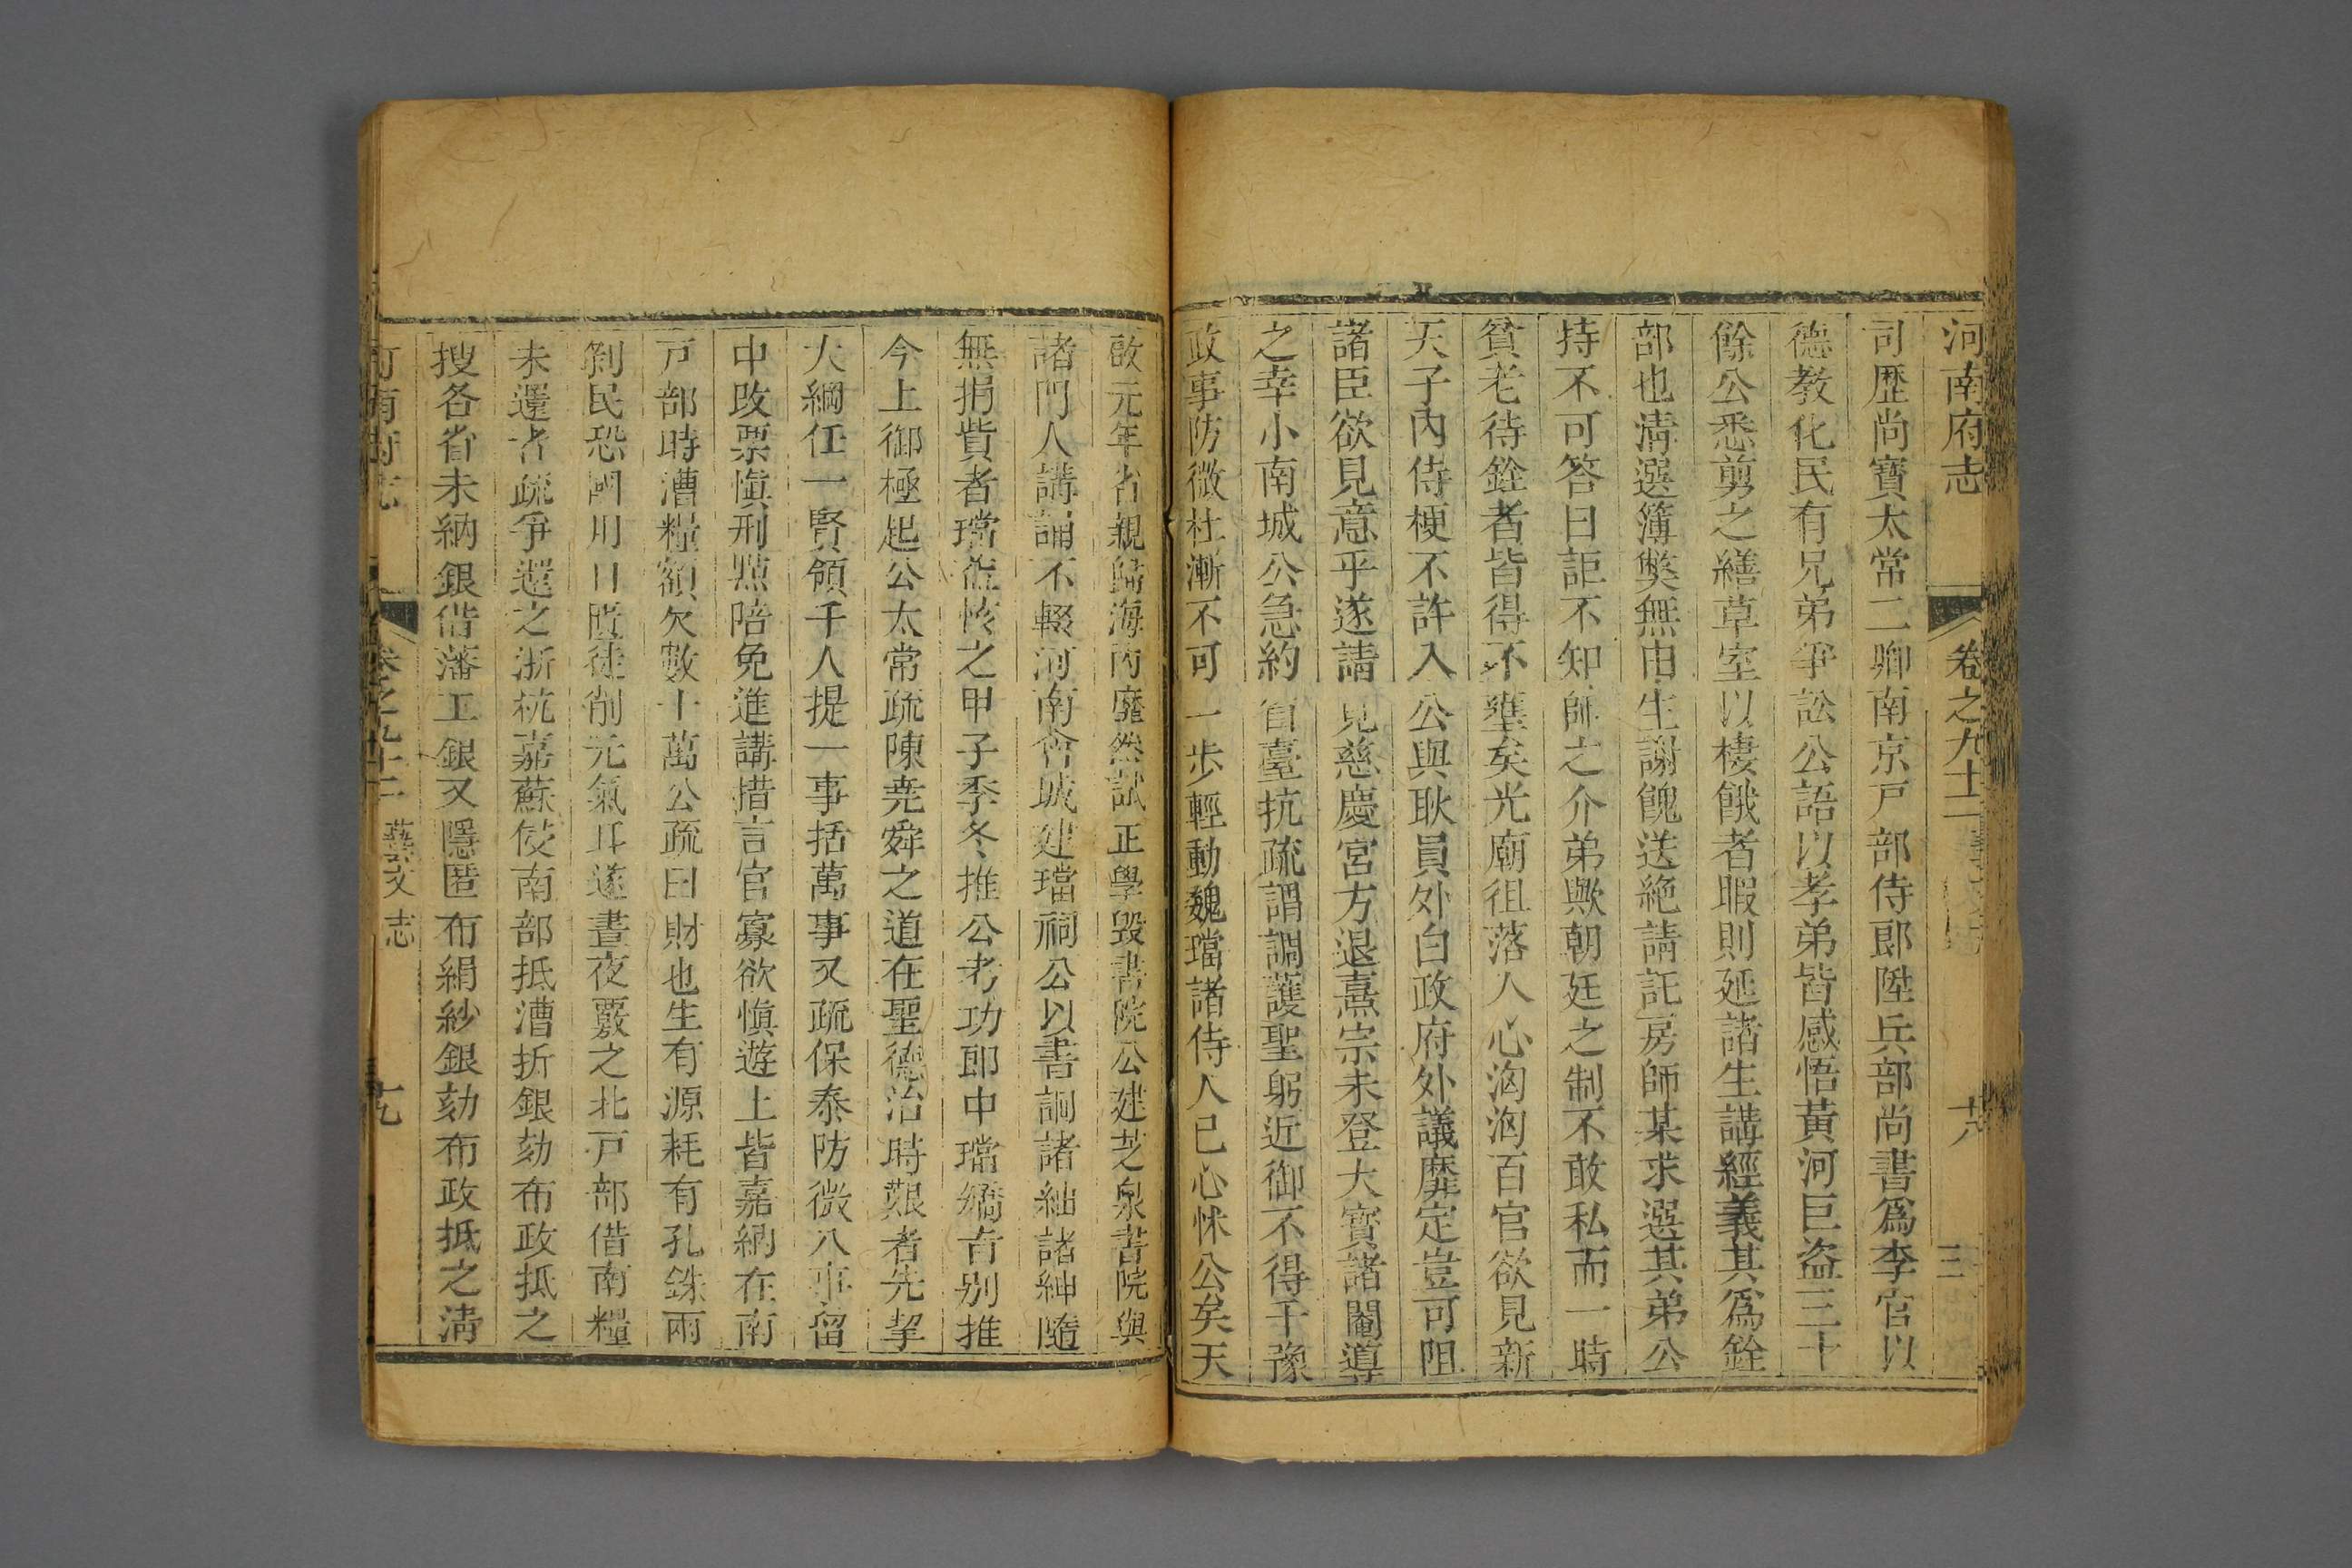 河南府志 卷之九十二 十八
司歷尚寶太常二卿南京戸部侍郎陞兵部尚書爲李官以
德教化民有兄弟爭訟公語以孝弟皆感悟黃河巨盜三十
餘公悉剪之繕草室以棲餓者暇則延諸生講經義其爲銓
部也淸選簿弊無由生謝餽送絶請託房師某求選其弟公
持不可答曰詎不知師之介弟歟朝廷之制不敢私而一時
貧老待銓者皆得不壅矣光廟徂落人心洶洶百官欲見新
天子內侍梗不許入公與耿員外白政府外議靡定豈可阻
諸臣欲見意乎遂請見慈慶宮方退熹宗未登大寶諸閹導
之幸小南城公急約臺抗疏謂調護聖躬近御不得干豫
政事防微杜漸不可一步輕動魏璫諸侍人已心怵公矣天
啟元年省親歸海內靡然試正學毀書院公建芝泉書院與
諸門人講誦不輟河南省城建璫祠公以書詗諸紳諸紳隨
無捐貲者璫益恢之甲子季冬推公考功郎中璫矯旨别推
今上御極起公太常疏陳堯舜之道在聖德治時艱者先挈
大綱任一賢領千人提一事括萬事又疏保泰防微八事留
中改票愼刑點陪免進講措言官寡欲愼遊上皆嘉納在南
戸部時漕糧額欠數十萬公疏曰財也生有源耗有孔銖兩
剝民恐國用日匱徒削元氣耳遂晝夜覈之北戸部借南糧
未還者疏爭還之浙杭嘉蘇伎南部抵漕折銀劾布政抵之
搜各省未納銀偕藩工銀又隱匿布絹紗銀劾布政抵之淸
河南府志 卷之九十二 藝文志 十九